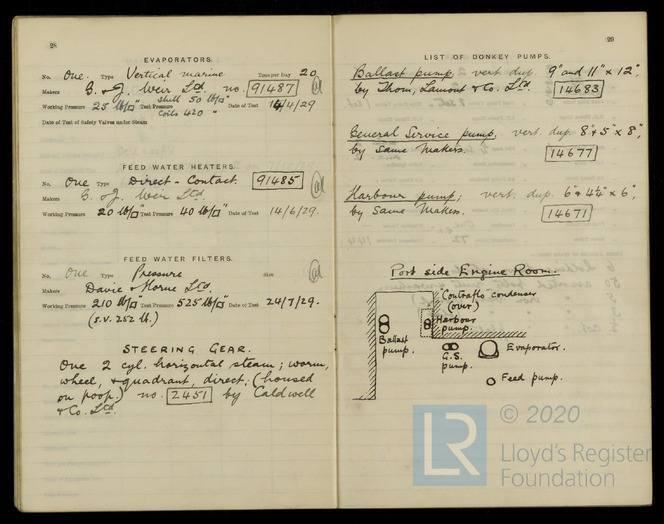 28
EVAPORATORS.
No. One. Type Vertical marine Tons per Day 20
Makers G. & J. Weir Ltd. no. 91487
Working Pressure 25 lb/□" Test Pressure Shell 50 lb/□" Date of Test 14/4/29
Coils 420 "
Date of Test of Safety Valves under Steam
FEED WATER HEATERS.
No. One Type Direct-Contact. 91485
Makers G. & J. Weir Ltd.
Working Pressure 20 lb/□" Test Pressure 40 lb/□" Date of Test 14/6/29.
FEED WATER FILTERS.
No. One Type Pressure Size
Makers Davie & Horne Ltd.
Working Pressure 210 lb/□" Test Pressure 525 lb/□" Date of Test 24/7/29.
(S.V. 252 lb.)
STEERING GEAR.
One 2 cyl. horizontal steam; worm,
wheel, & quadrant, direct; (housed
on poop) no. 2451 by Caldwell
& Co. Ltd.
29
LIST OF DONKEY PUMPS.
Ballast pump vert. dup. 9" and 11" x 12",
by Thom, Lamont & Co. Ltd. 14683
General Service pump, vert. dup. 8" & 5" x 8",
by same Makers. 14677
Harbour pump; vert. dup. 6" & 4¼" x 6",
by same Makers. 14671
Port side Engine Room.
Contraflo condenser
(over)
Harbour
pump.
Ballast
pump.
G.S.
pump.
Evaporator.
Feed pump.
© 2020
LR
Lloyd's Register
Foundation